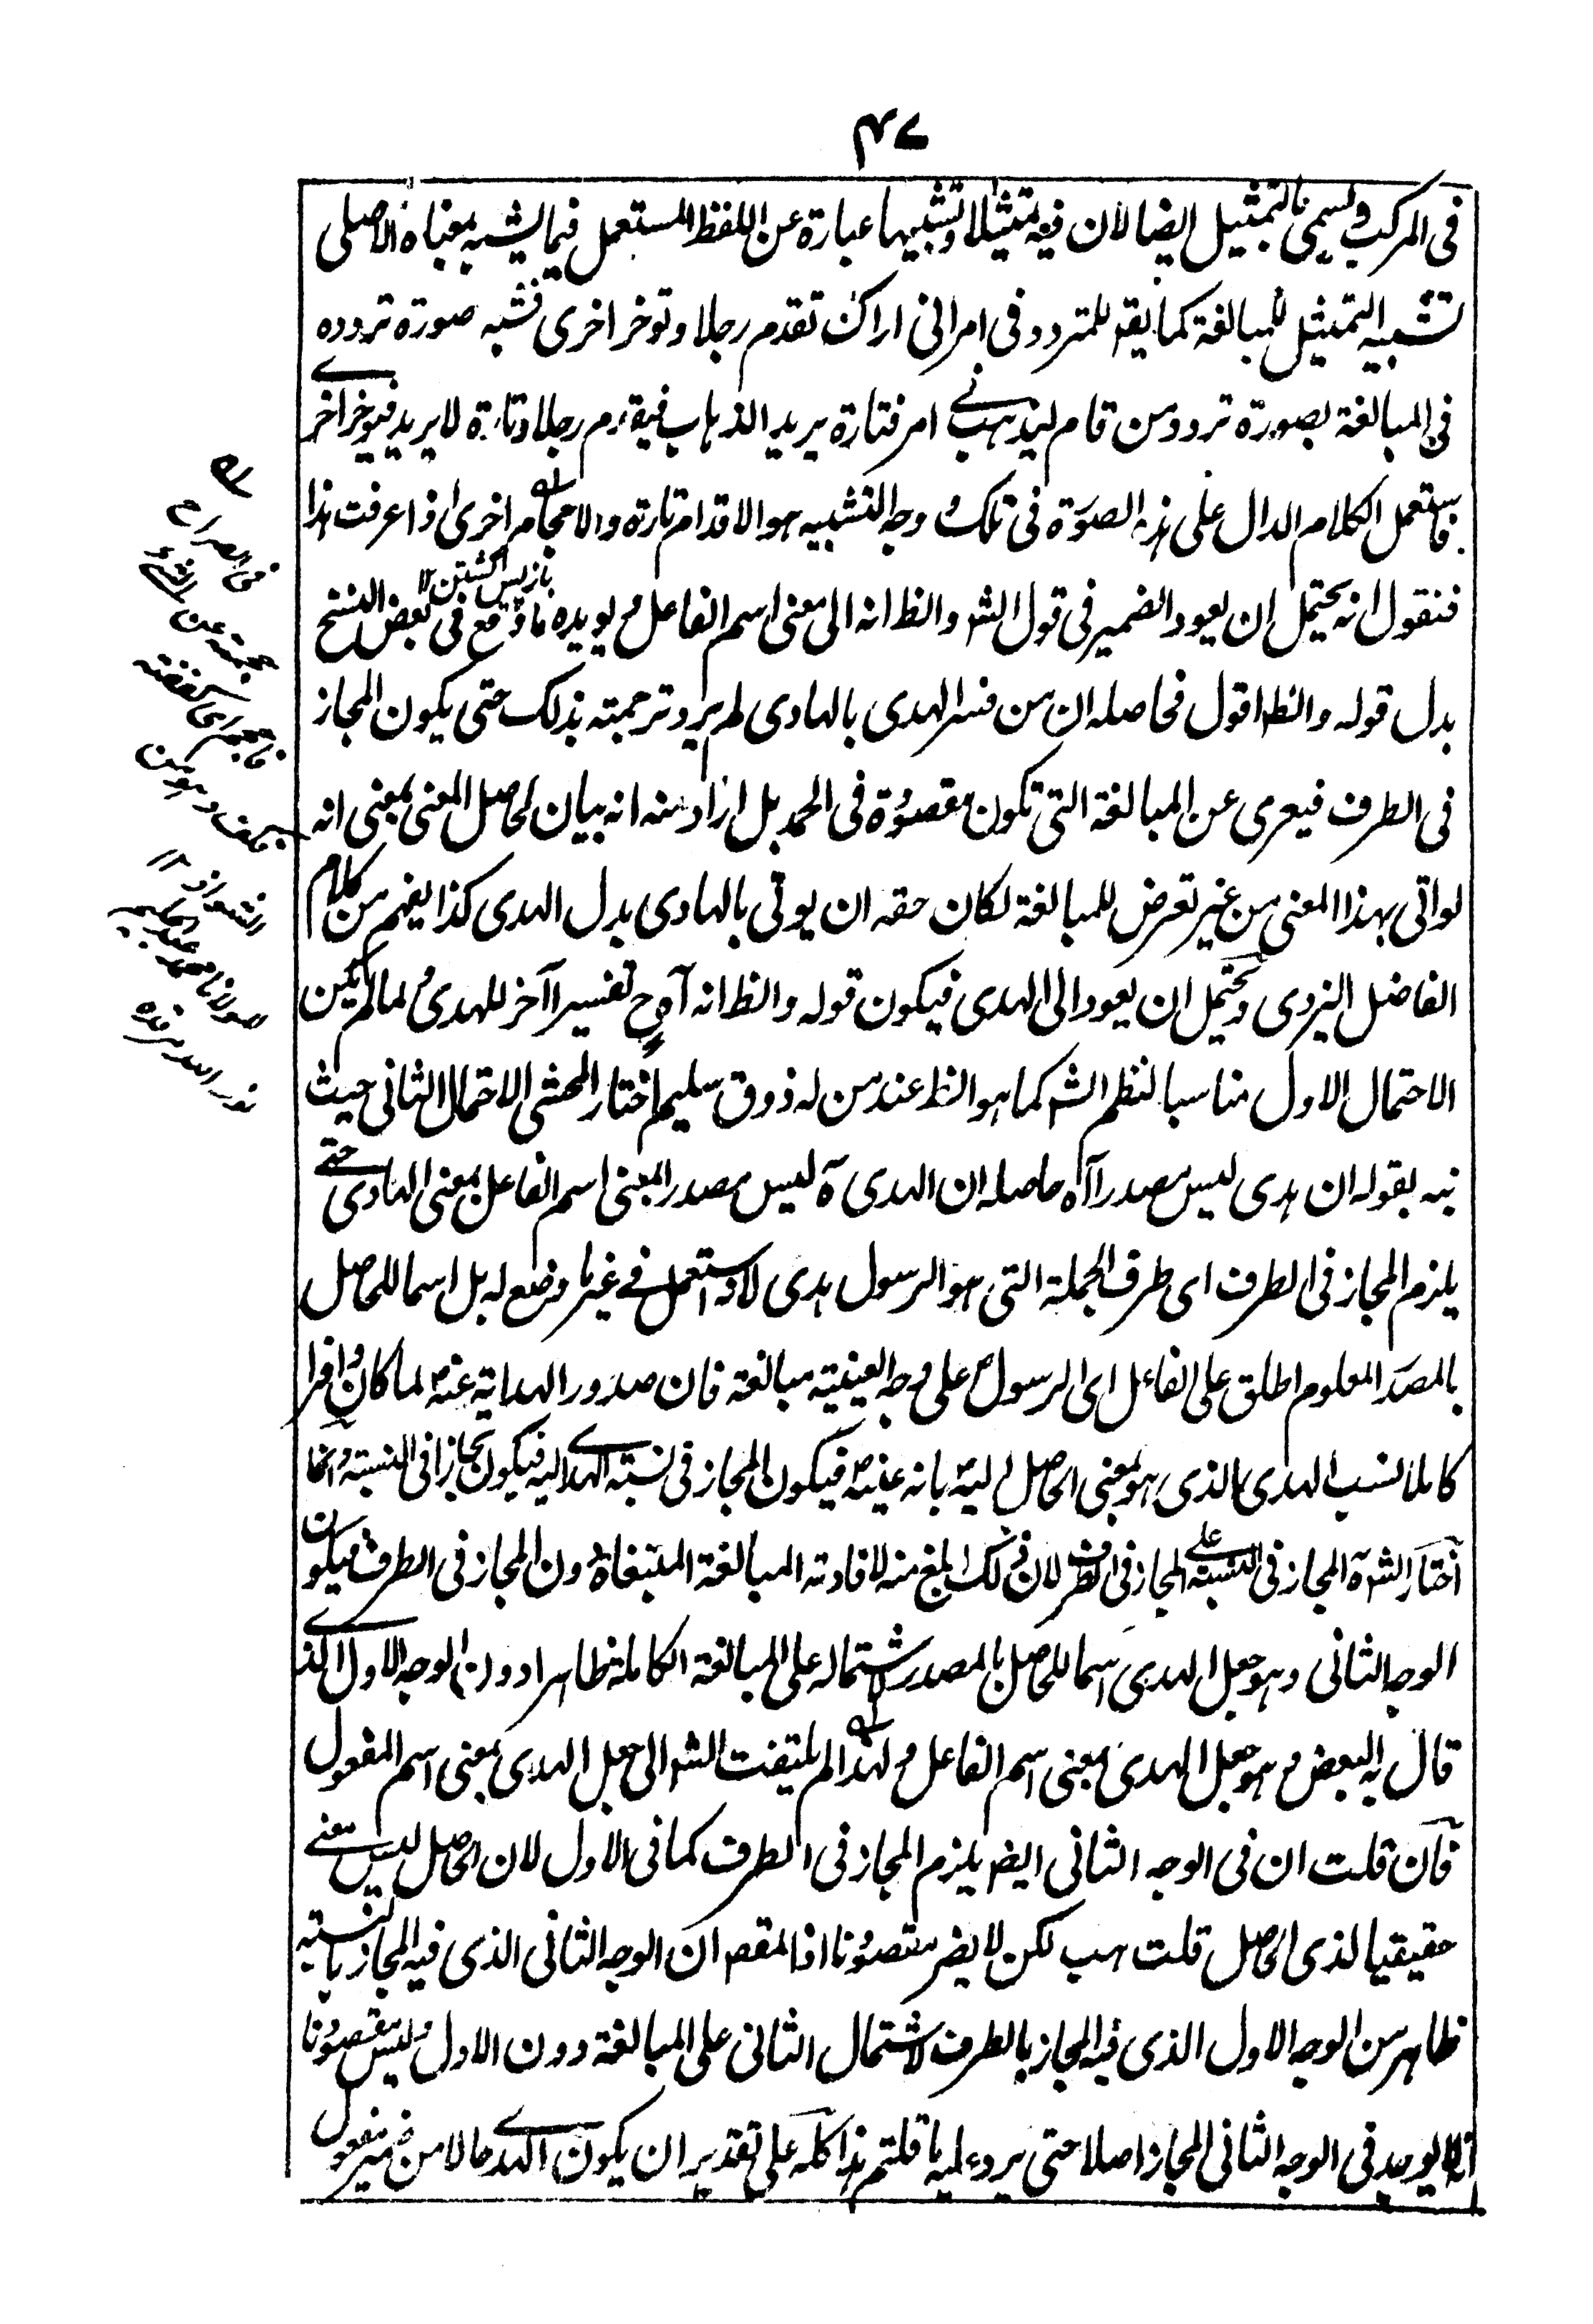 ۴۷
فى المركب ويسمى بالتمثيل ايضا لان فيه تمثيلا وتشبيها عبارة عن اللفظ المستعمل فيما يشبه بمعناه الاصلى
تشبيه التمثيل للمبالغة كما يقم للمتردد فى امر انى اراك تقدم رجلا وتوخر اخرى فشبه صورة تردده
فى المبالغة بصورة تردد من قام ليذهب فى امر فتارة يريد الذهاب فيقدم رجلا وتارة لا يريد فيوخر اخرى
فاستعمل الكلام الدال على هذه الصورة فى تلك ووجه التشبيه هو الاقدام تارة والاحجام اخرى اذا عرفت هذا
باز پس گشتن ١٢
فنقول انه يحتمل ان يعود الضمير فى قول الشم والظ انه الى معنى اسم الفاعل ويويده ما وقع فى بعض النسخ
بدل قوله والظ اقول فحاصله ان من فسر الهدى بالهادى لم يرد ترجمته بذلك حتى يكون المجاز
فى الطرف فيعرى عن المبالغة التى تكون مقصودة فى الحمد بل اراد منه انه بيان لحاصل المعنى بمعنى انه
لو اتى بهذا المعنى من غير تعرض للمبالغة لكان حقه ان يوتى بالهادى بدل الهدى كذا يفهم من كلام
الفاضل اليزدى ويحتمل ان يعود الى الهدى فيكون قوله والظ انه آه ح تفسيرا آخر للهدى ولما لم يكن
الاحتمال الاول مناسبا لنظم الشم كما هو الظ عند من له ذوق سليم اختار المحشى الاحتمال الثانى حيث
نبه بقوله ان هدى ليس مصدرا آه حاصله ان الهدى ة ليس مصدر المعنى اسم الفاعل بمعنى الهادى حتى
يلزم المجاز فى الطرف اى طرف الجملة التى هو الرسول هدى لانه استعمل فى غير ما وضع له بل اسما للحاصل
بالمصدر المعلوم اطلق على الفاعل اى الرسول ص على وجه العينية مبالغة فان صدور الهداية عنه ص لما كان وافرا
كاملا نسب الهدى الذى هو بمعنى الحاصل اليه ص بانه عينه ص فيكون المجاز فى نسبة الهدى اليه فيكون مجازا فى النسبة وانما
اختار الشم ة المجاز فى النسبة على المجاز فى الطرف لان ذلك ابلغ منه لافادته المبالغة المبتغاة دون المجاز فى الطرف فيكون
الوجه الثانى وهو جعل الهدى اسما للحاصل بالمصدر لاشتماله على المبالغة الكاملة ظاهرا دون الوجه الاول الذى
قال به البعض وهو جعل الهدى بمعنى اسم الفاعل ولهذا لم يلتفت الشم الى جعل الهدى بمعنى اسم المفعول
فان قلت ان فى الوجه الثانى ايضم يلزم المجاز فى الطرف كما فى الاول لان الحاصل ليس معنى
حقيقيا لذى الحاصل قلت هب لكن لا يضر مقصودنا اذ المقصم ان الوجه الثانى الذى فيه المجاز بالنسبة
ظاهر من الوجه الاول الذى فيه المجاز بالطرف لاشتمال الثانى على المبالغة دون الاول وليس مقصودنا
انه لا يوجد فى الوجه الثانى المجاز اصلا حتى يرد عليه ما قلتم هذا كله على تقدير ان يكون الهدى حالا من ضمير مفعول
له
فى الصراح
عن الشئ
اى كففته
فكف
مولانا محمد عبد الحكيم
نور الله مرقده